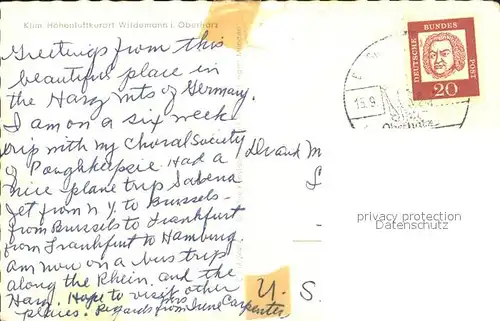 Klim. Höhenluftkurort Wildemann i. Oberharz
Greetings from this
beautiful place in
the Harz Mts of Germany.
I am on a six week
trip with my Choral Society
of Poughkeepsie. Had a
nice plane trip Sabena
Jet from N Y. to Brussels -
from Brussels to Frankfurt
from Frankfurt to Hamburg.
Am now on a bus trip
along the Rhein, and the
Harz. Hope to visit other
places. Regards from Mrs Irene Carpenter
Dr and M
U. S.
DEUTSCHE BUNDES POST
20
15.9
Oberharz
privacy protection
Datenschutz